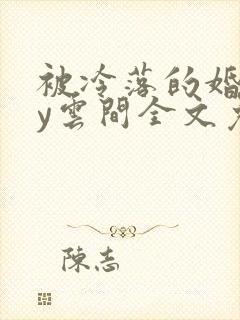 被冷落的婚
y雲間全文
陳志